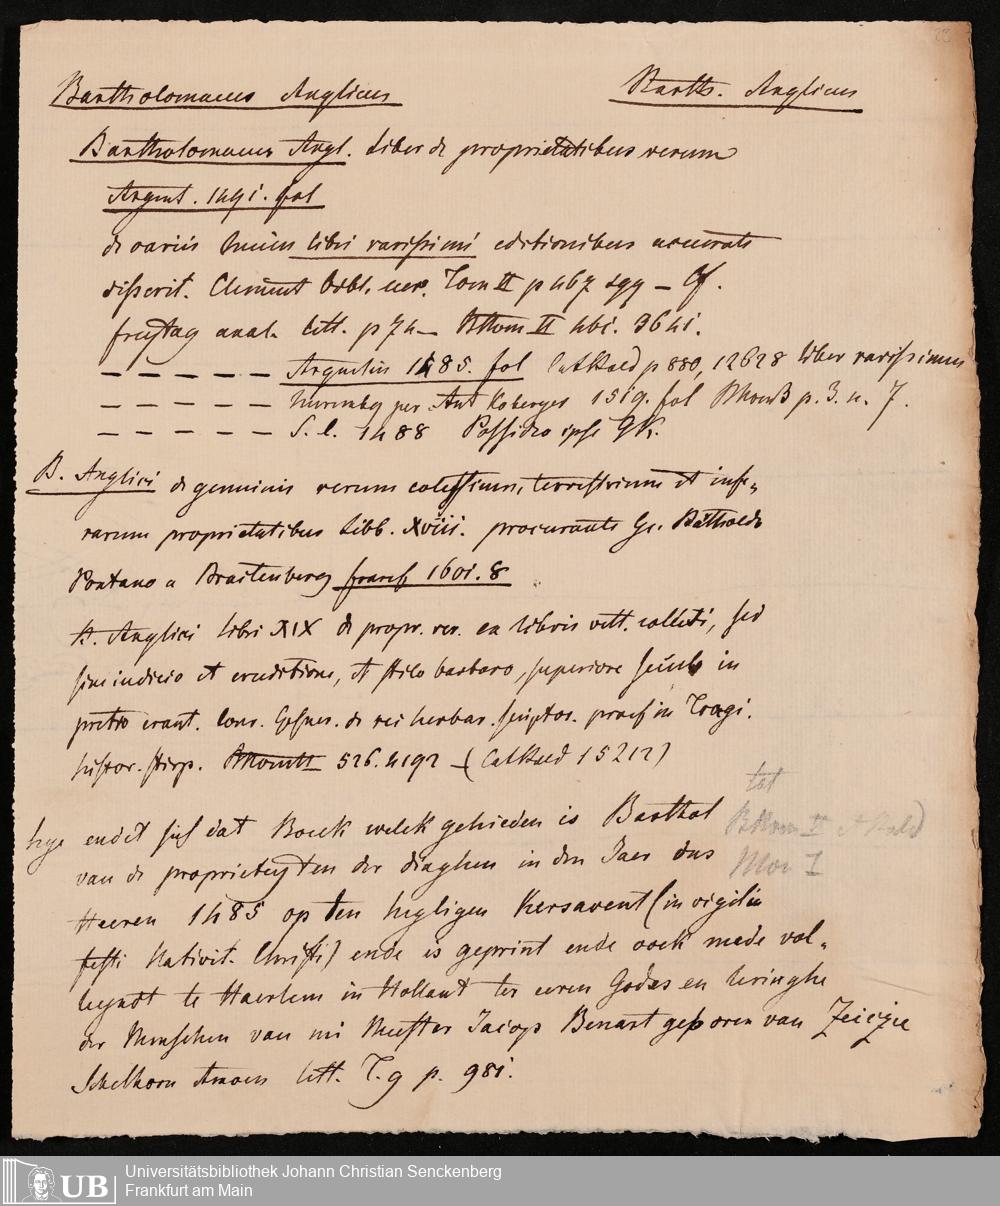 Bartholomaeus Anglicus Barth. Anglicus
Bartholomaeus Angl. Liber de proprietatibus rerum
Argent. 1491. fol
de variis huius libri rarissimi editionibus accurate
disserit. Clement bibl. cur. Tom II p 467 sqq – Cf.
freytag anal. litt. p 74 – II 3641.
– – – – – Argentin 1485. fol p 880, 12628 liber rarissimus
– – – – – Nuremb per Ant Koberger 1519. fol p. 3. n. 7.
– – – – – S. l. 1488 Possideo ipse GK.
B. Anglici de genuinis rerum coelestium, terrestrium et infe-
rarum proprietatibus Libb. XVIII. procurante Ge. Bartholdo
Pontano a Braitenberg francf 1601. 8
B. Anglici libri XIX de propr. rer. ex libris vett. collecti, sed
sine iudicio et eruditione, et stilo barbaro, superiore seculo in
pretio erant. Conr. Gesner. de rei herbar. scriptor. praef in Tragi.
histor. stirp. 526. 4192 – (Cat 15212)
hye endet sich dat Boeck welck gehieten is Barthol
van de proprieteyten der dinghen in den Jaer ons
Heeren 1485 op ten heyligen Kersavent (in vigilia
festi Nativit. Christi) ende is geprint ende oock mede vol-
leyndt te Haerlem in Hollant ter eeren Godes en leringhe
der Menschen van mi Meester Jacop Benart geboren van Zeiczie
Schelhorn Amoen litt. T. 9 p. 981.
II et
I
Universitätsbibliothek Johann Christian Senckenberg
Frankfurt am Main
UB